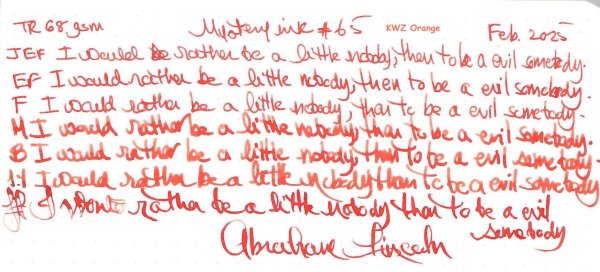 TR 68 gsm Mystery ink #65 KWZ Orange Feb. 2025
JEF I would be rather be a little nobody, then to be a evil somebody.
EF I would rather be a little nobody, then to be a evil somebody.
F I would rather be a little nobody, than to be a evil somebody.
M I would rather be a little nobody, than to be a evil somebody.
B I would rather be a little nobody, than to be a evil somebody.
1.1 I would rather be a little nobody than to be a evil somebody
I rather be a little nobody than to be a evil
somebody
Abraham Lincoln